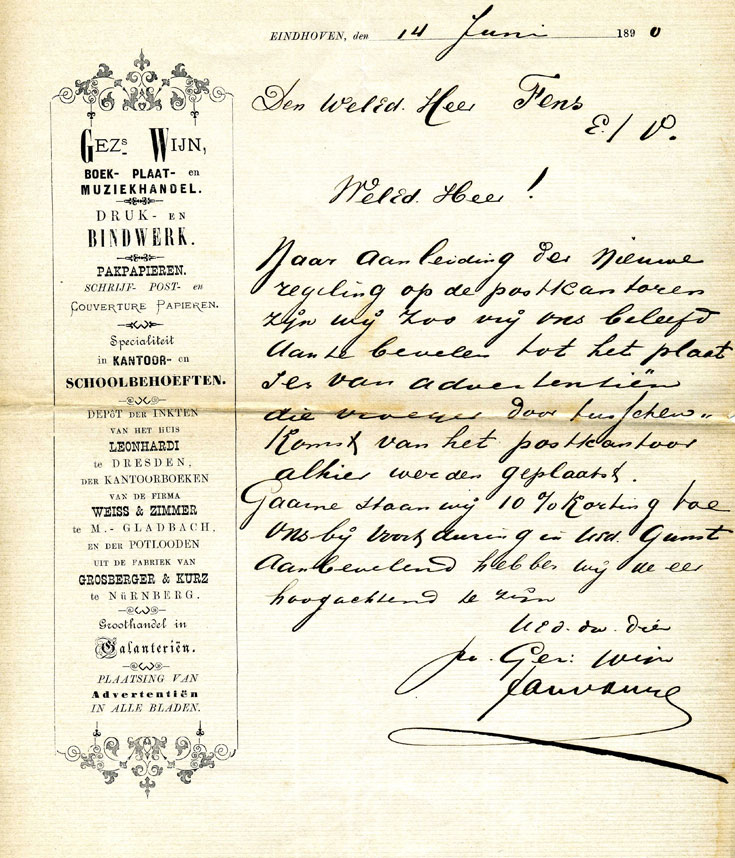 EINDHOVEN, den 14 Juni 1890
GEZs WIJN,
BOEK- PLAAT- en
MUZIEKHANDEL.
DRUK- EN
BINDWERK.
PAKPAPIEREN.
SCHRIJF- POST- en
COUVERTURE PAPIEREN.
Specialiteit
in KANTOOR- en
SCHOOLBEHOEFTEN.
DEPÔT DER INKTEN
VAN HET HUIS
LEONHARDI
te DRESDEN,
DER KANTOORBOEKEN
VAN DE FIRMA
WEISS & ZIMMER
te M.- GLADBACH,
EN DER POTLOODEN
UIT DE FABRIEK VAN
GROSBERGER & KURZ
te NüRNBERG.
Groothandel in
Galanteriën.
PLAATSING VAN
Advertentiën
IN ALLE BLADEN.
Den WelEd. Heer Fens
E./V.
WelEd. Heer!
Naar aanleiding der nieuwe
regeling op de postkantoren
zijn wij zoo vrij ons beleefd
aan te bevelen tot het plaat
sen van advertentiën
die vroeger door tusschen„
komst van het postkantoor
alhier werden geplaatst.
Gaarne staan wij 10% korting toe
ons bij voortduring in Ued. Gunst
aanbevelend hebben wij de eer
hoogachtend te zijn
UEd. dw. dien
pr. Gez: Wijn